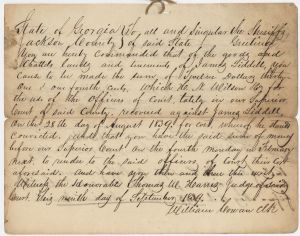 State of Georgia } To all and Singular the Sheriffs
Jackson County } of said State Greeting
You are hereby Commanded that of the goods and
Chattels lands and tenements of James Liddell you
Cause to be made the sum of Twelve Dollars Ninety
One & one fourth cents, which
the use of the Officers of Court, lately in our Superior
Court of said County, recovered against James Liddell
On the 28th day of August 1839, for cost whereof he stands
Convicted, And that you have the said sum of money
before our Superior Court on the fourth Monday in February
next, to render to the said officers of Court their cost
aforesaid. And have you then and there this writ
Witness the Honorable Thomas W. Harris Judge of said
Court, this ninth day of September 1839.
William Cowan Clk